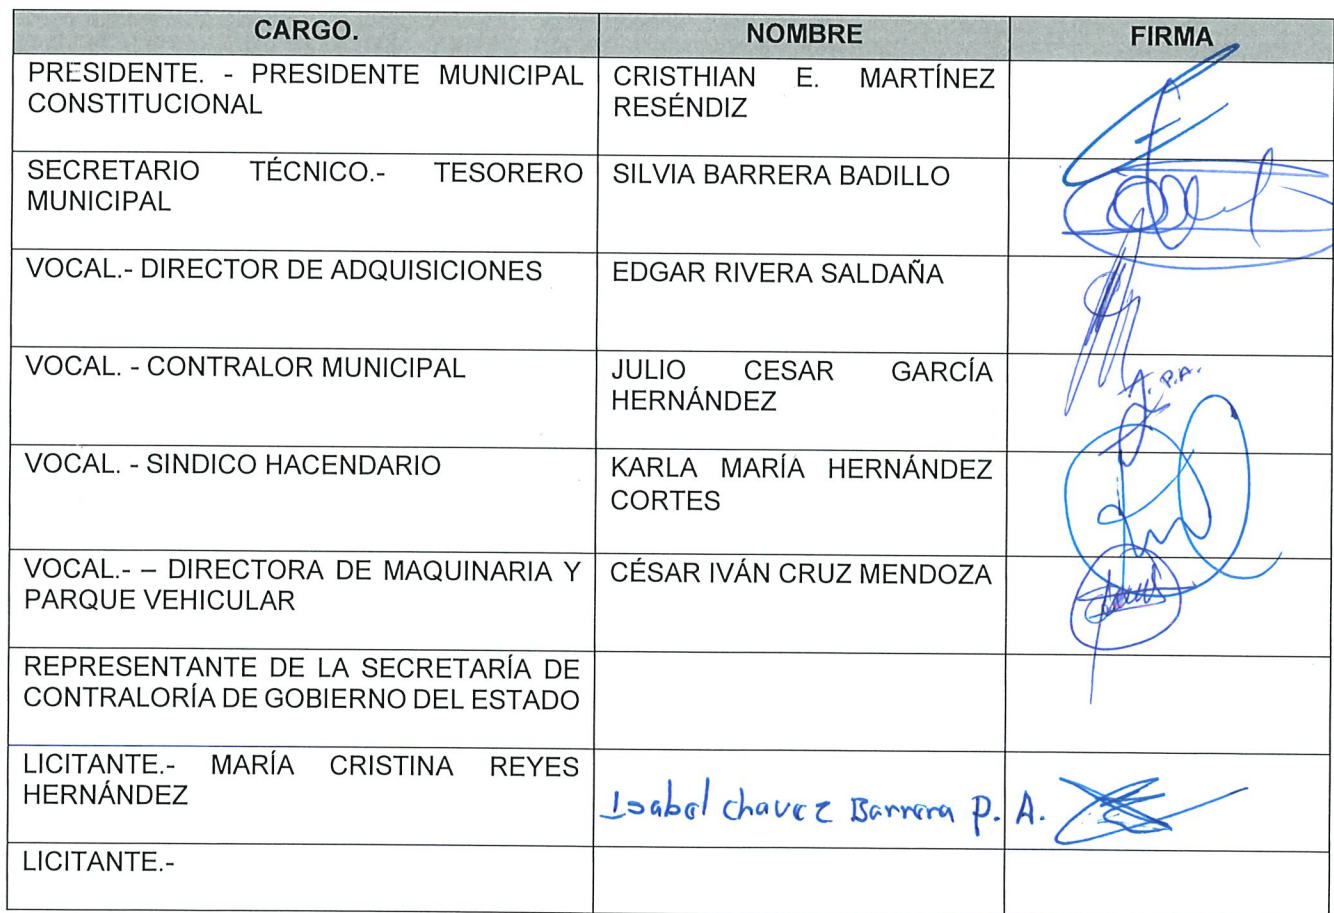 CARGO. NOMBRE FIRMA
PRESIDENTE. - PRESIDENTE MUNICIPAL CONSTITUCIONAL
CRISTHIAN E. MARTÍNEZ RESÉNDIZ
SECRETARIO TÉCNICO.- TESORERO MUNICIPAL
SILVIA BARRERA BADILLO
VOCAL.- DIRECTOR DE ADQUISICIONES
EDGAR RIVERA SALDAÑA
VOCAL. - CONTRALOR MUNICIPAL
JULIO CESAR GARCÍA HERNÁNDEZ
A. P.A.
VOCAL. - SINDICO HACENDARIO
KARLA MARÍA HERNÁNDEZ CORTES
VOCAL.- – DIRECTORA DE MAQUINARIA Y PARQUE VEHICULAR
CÉSAR IVÁN CRUZ MENDOZA
REPRESENTANTE DE LA SECRETARÍA DE CONTRALORÍA DE GOBIERNO DEL ESTADO
LICITANTE.- MARÍA CRISTINA REYES HERNÁNDEZ
Isabel chavez Barrera P. A.
LICITANTE.-